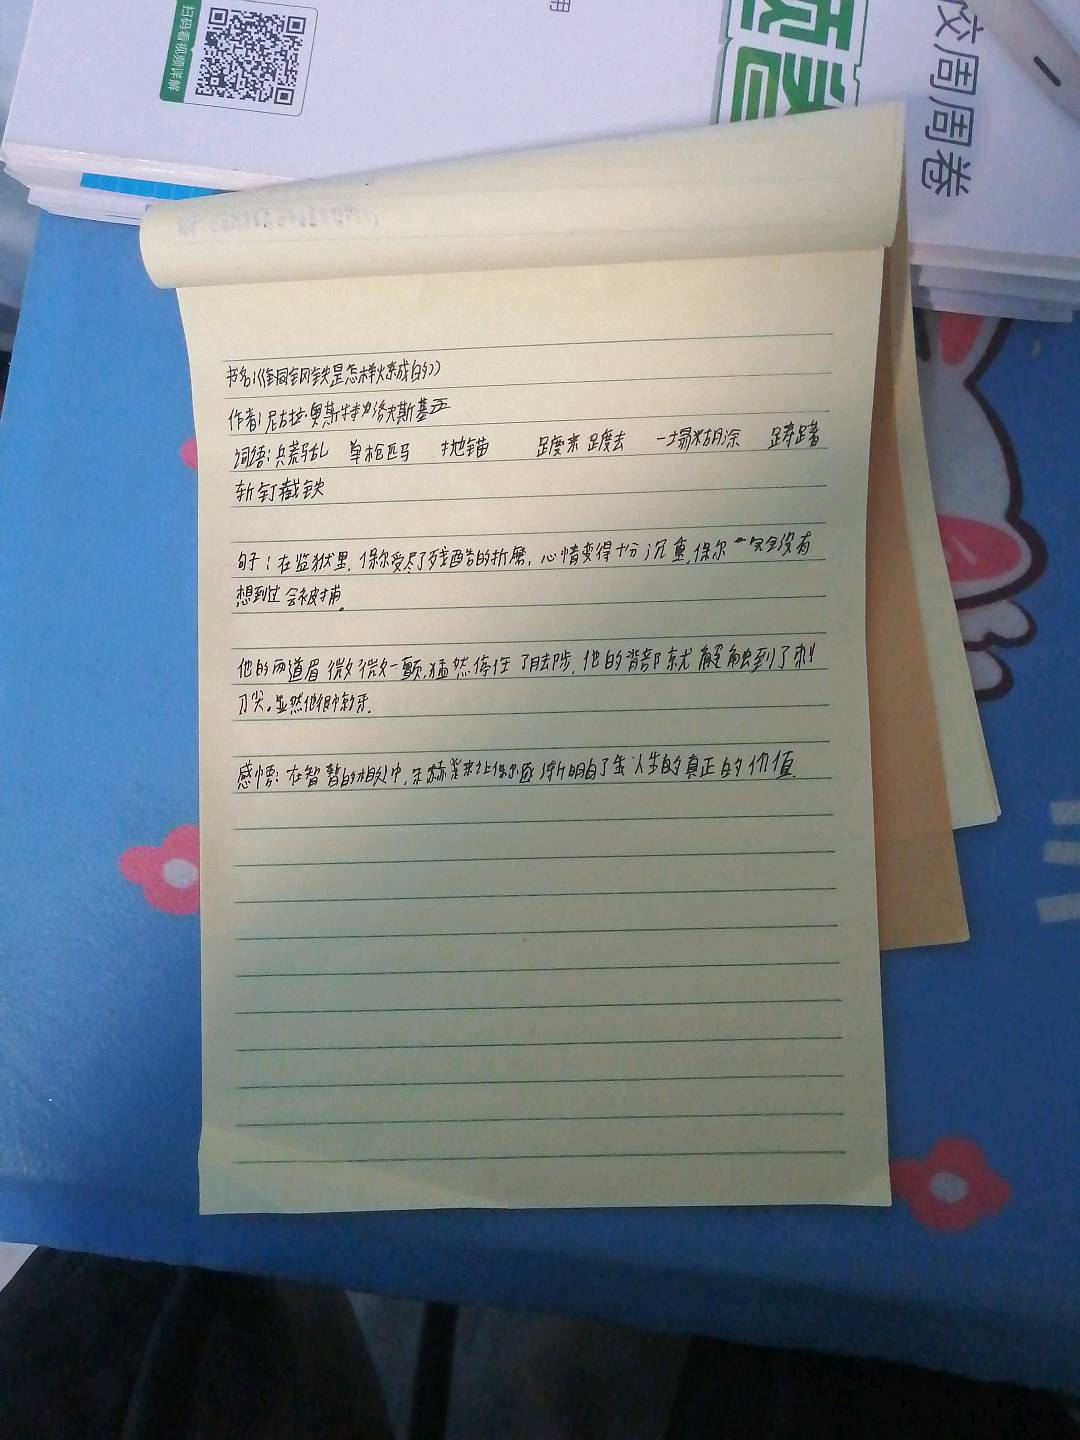 扫码看视频详解
用
顶卷
校周周卷
书名:《钢铁是怎样炼成的》
作者:尼古拉·奥斯特洛夫斯基
词语:兵荒马乱 单枪匹马 抛锚 踱来踱去 一塌糊涂 踌躇
斩钉截铁
句子:在监狱里,保尔受尽了残酷的折磨,心情变得十分沉重,保尔 完全没有
想到过会被捕。
他的两道眉微微一颤,猛然停住了脚步,他的背部就触到了刺
刀尖。显然他很
感悟:在短暂的相处中,朱赫来让保尔逐渐明白了 人生的真正的价值.